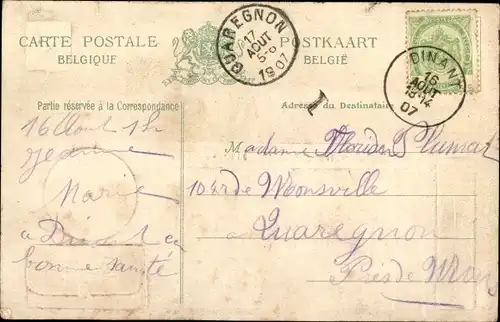 CARTE POSTALE
BELGIQUE
POSTKAART
BELGIË
QUAREGNON
17
AOUT
5-6
1907
DINANT
16
AOUT
13-14
07
T
Partie réservée à la Correspondance
Adresse du Destinataire
16 Aout 1h
Jeanne
Marie
a Dinant en
bonne santé
Madame Florian Plumat
rue Monsville
a Quaregnon
Près de Mons